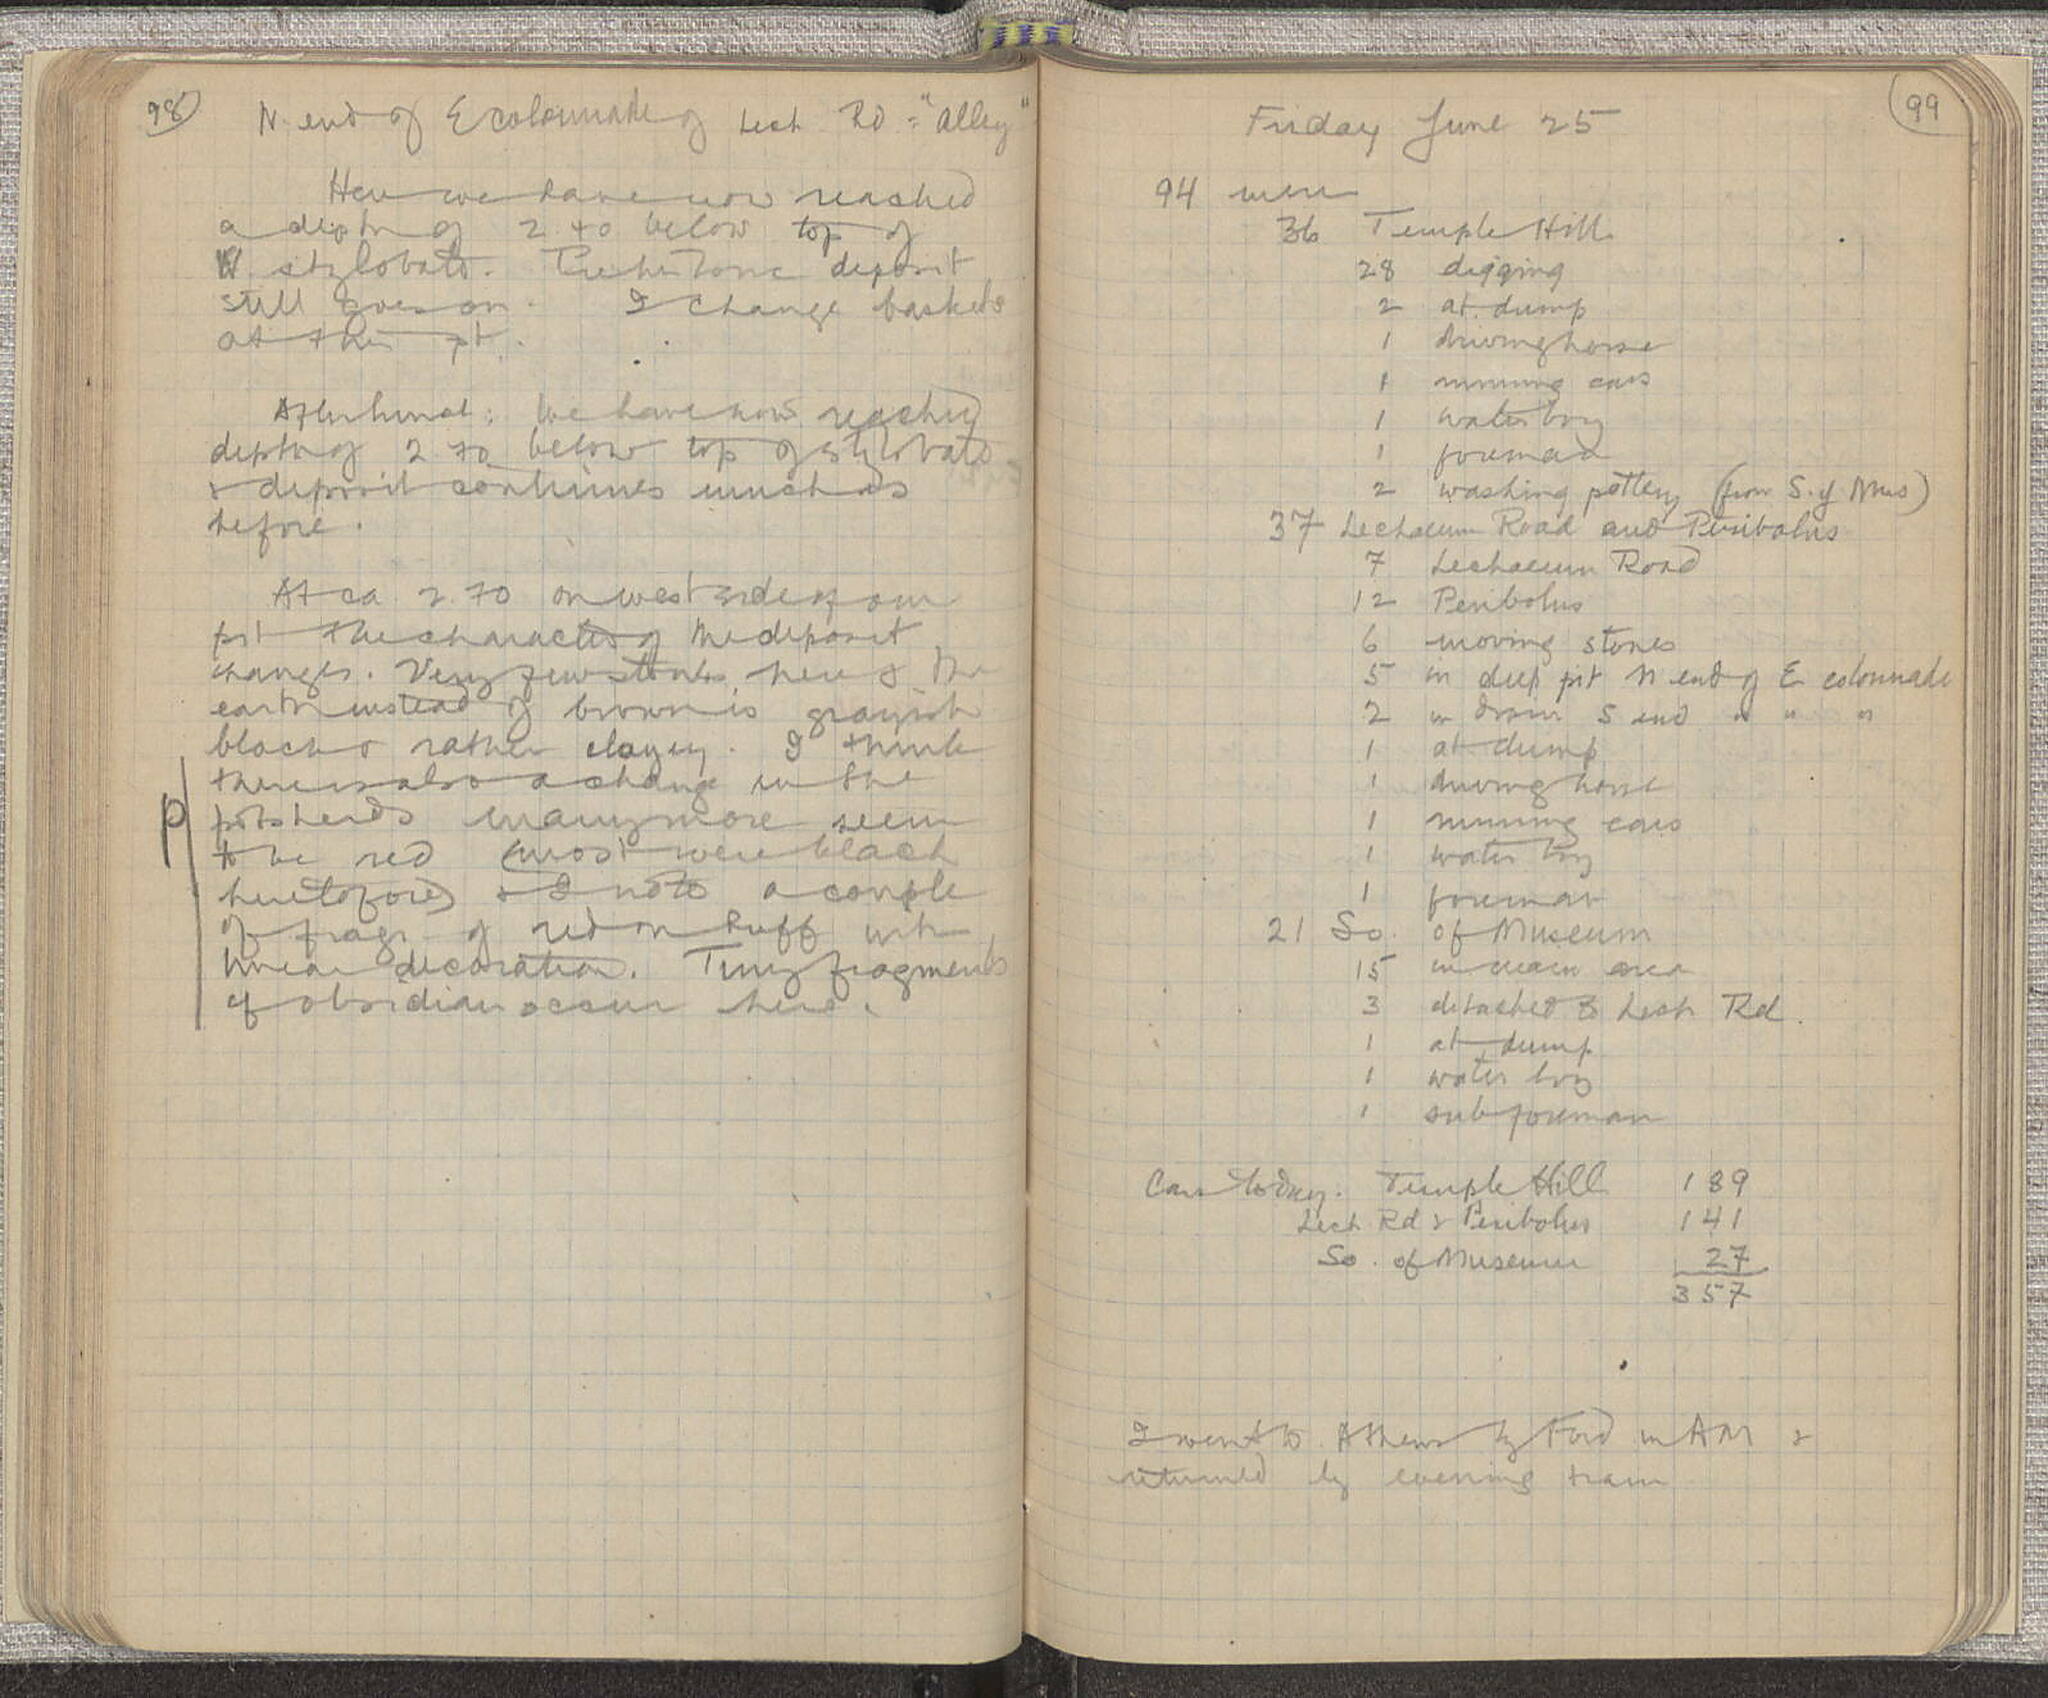 98
N. end of E colonnade of Lech Rd = "Alley"
Here we have now reached
a depth of 2.40 below top of
W stylobate. Prehistoric deposit
still goes on. I change baskets
at this pt.
After lunch: We have now reached
depth of 2.70 below top of stylobate
& deposit continues much as
before.
At ca 2.70 on west side of our
pit the character of the deposit
changes. Very few stones here & the
earth instead of brown is grayish
black & rather clayey. I think
there is also a change in the
P potsherds many more seem
to be red (most were black
heretofore) & I note a couple
of frags. of red on buff with
linear decoration. Tiny fragments
of obsidian occur here.
99
Friday June 25
94 men
36 Temple Hill
28 digging
2 at dump
1 driving horse
1 running cars
1 water boy
1 foreman
2 washing pottery (from S. of Mus)
37 Lechaeum Road and Peribolus
7 Lechaeum Road
12 Peribolus
6 moving stones
5 in deep pit N end of E colonnade
2 in drain S end " " "
1 at dump
1 driving horse
1 running cars
1 water boy
1 foreman
21 So. of Museum
15 in main area
3 detached to Lech Rd.
1 at dump
1 water boy
1 sub foreman
Cars today. Temple Hill 189
Lech Rd & Peribolus 141
So. of Museum 27
357
I went to Athens by Ford in AM &
returned by evening train